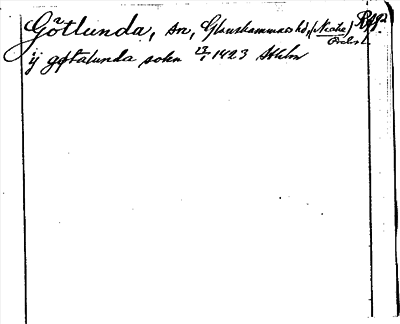 Götlunda, sn, Glanshammars hd, (Närke) Rygg
Örebro l.
ij gøtalunda sokn 13/1 1423 Sthlm